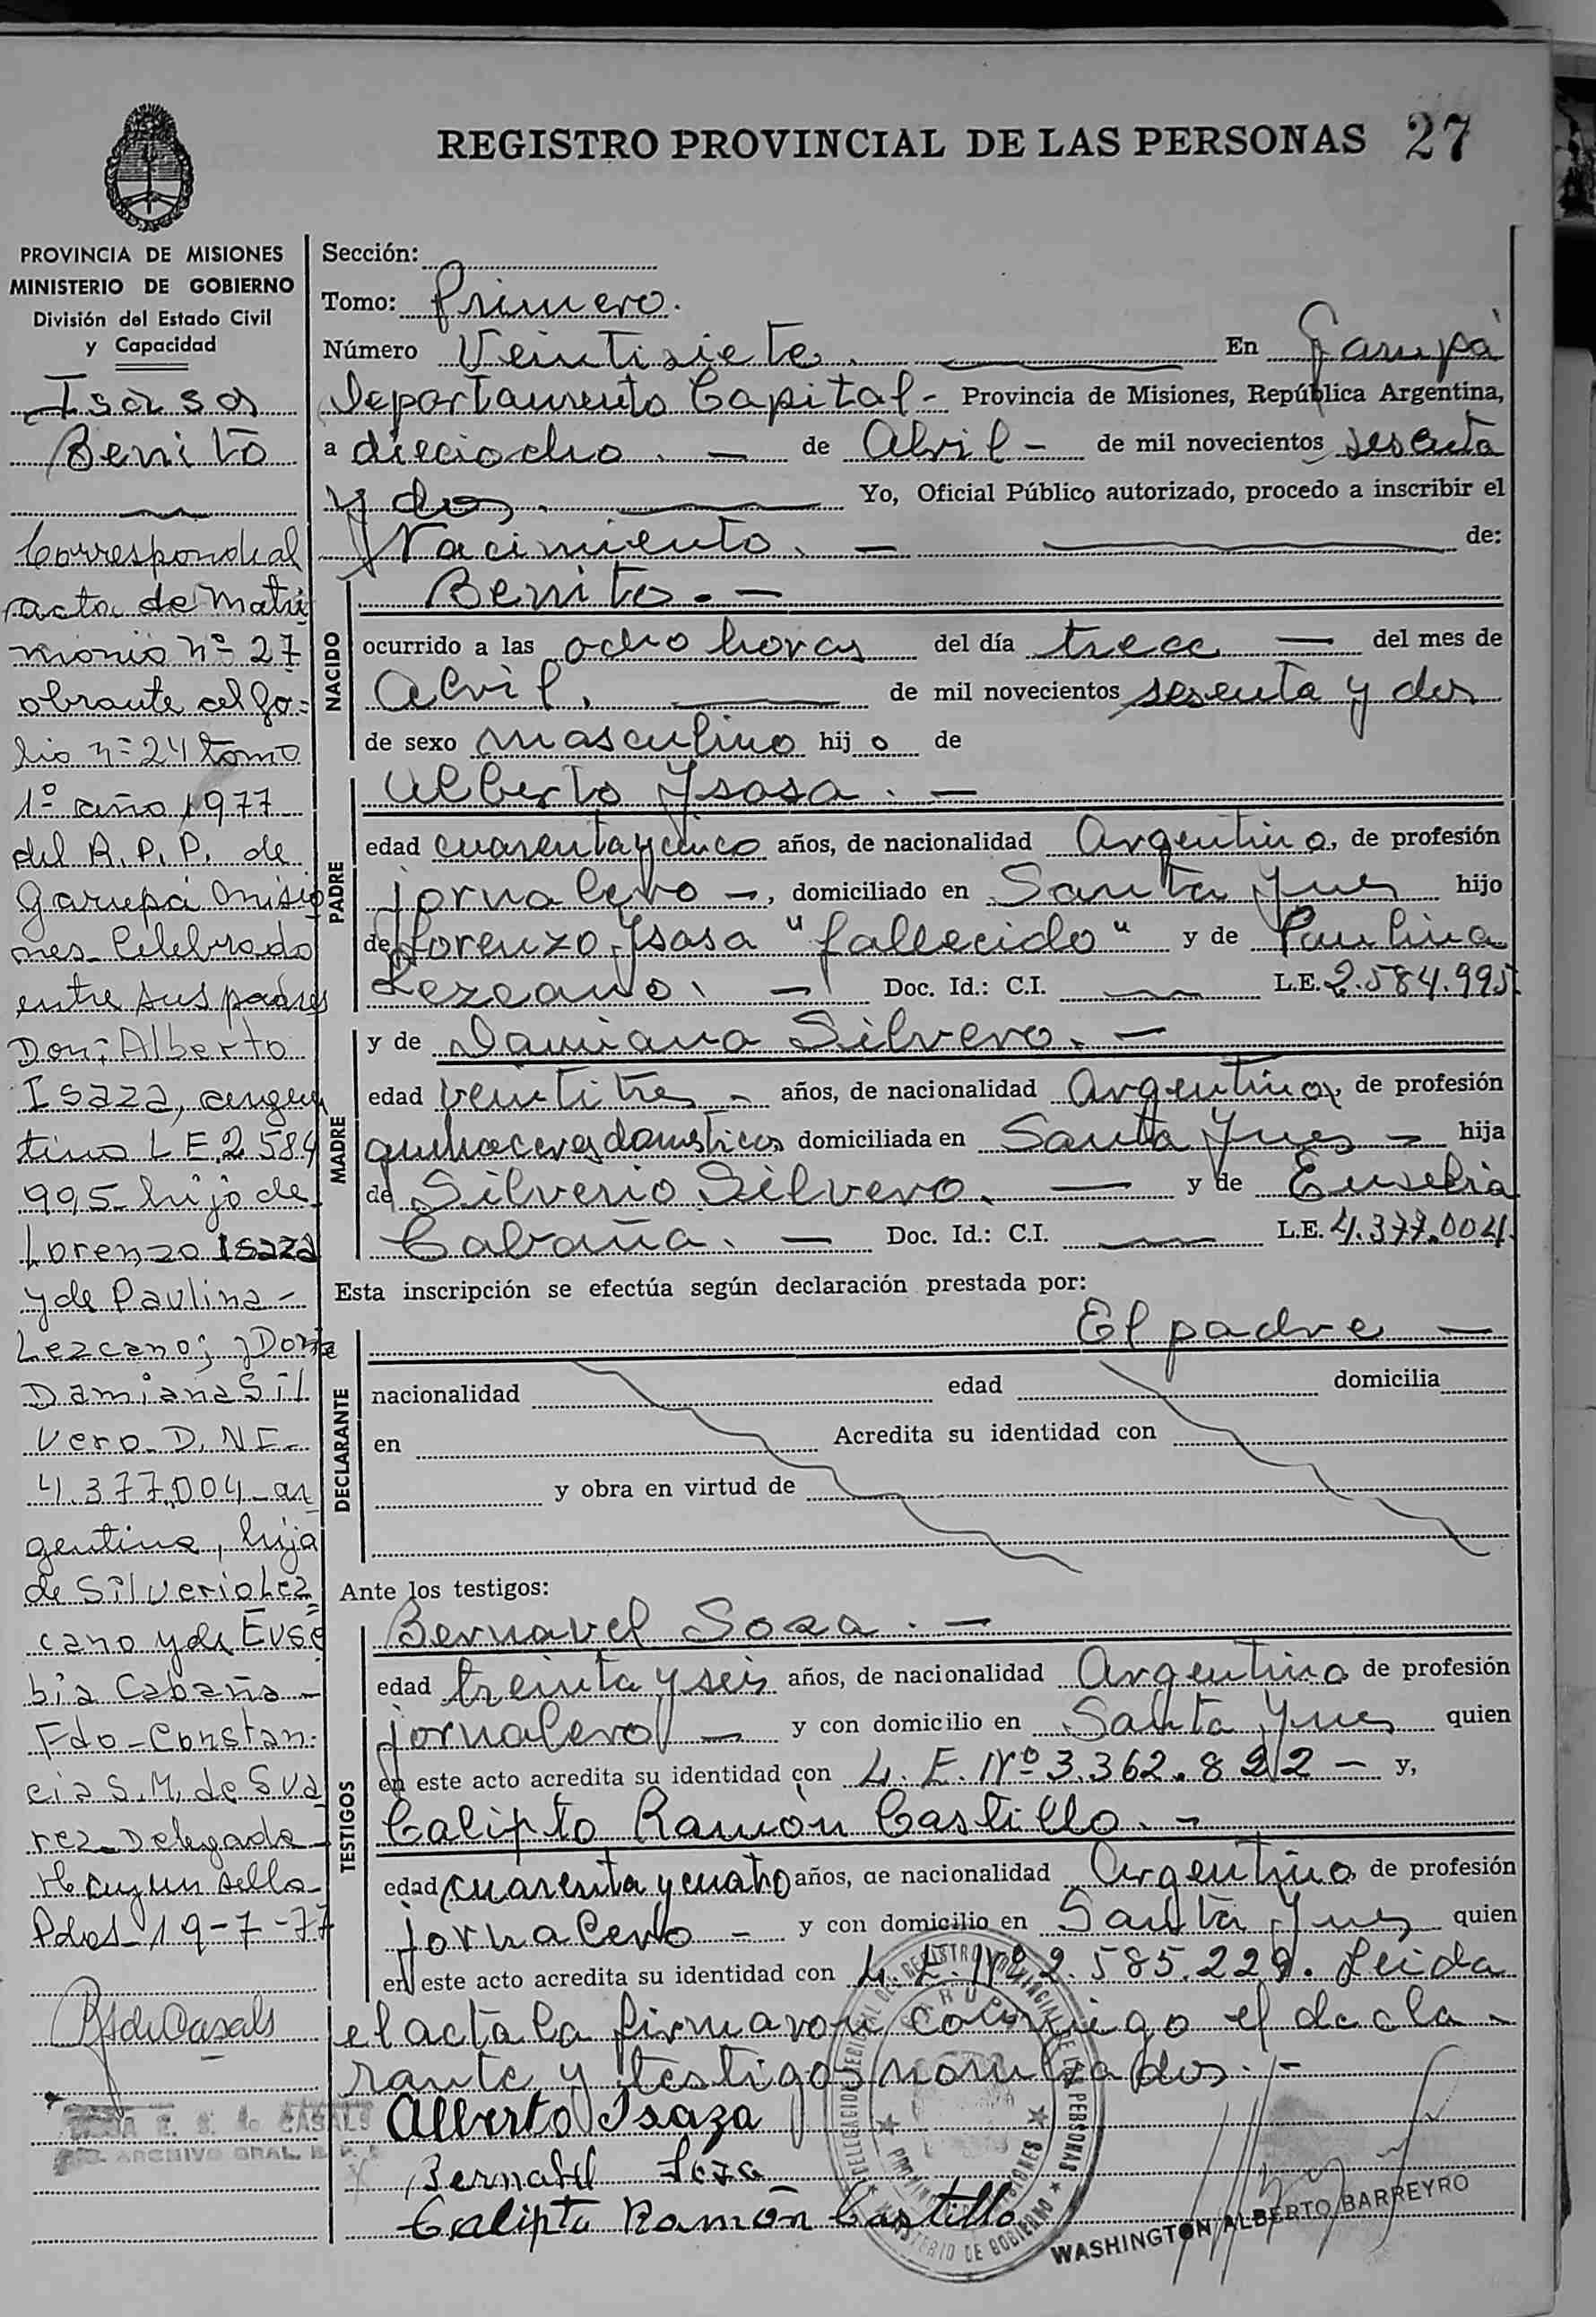 REGISTRO PROVINCIAL DE LAS PERSONAS 27
PROVINCIA DE MISIONES
MINISTERIO DE GOBIERNO
División del Estado Civil
y Capacidad
Isasa
Benito
Corresponde al
acta de Matri
monio nº 27
obrante al fo=
lio nº 24 tomo
1º año 1977
del R.P.P. de
Garupá Misio
nes. Celebrado
entre sus padres
Don: Alberto
Isaza, argen
tino L E 2 584
995 hijo de
Lorenzo Isaza
y de Paulina -
Lezcano; y Doña
Damiana Sil
vero D.N.I.
4.377.004 - ar
gentina, hija
de Silverio Lez
cano y de Euse
bia Cabaña -
Fdo - Constan-
cia S. M. de Sua
rez - Delegada -
Hay un sello -
Pdas 19-7-77
Sección:
Tomo: Primero.
Número Veintisiete. En Garupá
Departamento Capital - Provincia de Misiones, República Argentina,
a dieciocho. - de Abril - de mil novecientos sesenta
y dos. Yo, Oficial Público autorizado, procedo a inscribir el
Nacimiento. - de:
NACIDO
Benito. -
ocurrido a las ocho horas del día trece - del mes de
Abril. de mil novecientos sesenta y dos
de sexo masculino hij o de
PADRE
Alberto Ysasa. -
edad cuarenta y cinco años, de nacionalidad Argentino, de profesión
jornalero -, domiciliado en Santa Ynes hijo
de Lorenzo Ysasa "fallecido" y de Paulina
Lezcano. - Doc. Id.: C.I. — L.E. 2.584.995
MADRE
y de Damiana Silvero. -
edad veintitres - años, de nacionalidad Argentina, de profesión
quehaceres domesticos domiciliada en Santa Ynes - hija
de Silverio Silvero. — y de Eusebia
Cabaña. - Doc. Id.: C.I. — L.E. 4.377.004.
Esta inscripción se efectúa según declaración prestada por:
DECLARANTE
El padre -
nacionalidad edad domicilia
en Acredita su identidad con
y obra en virtud de
Ante los testigos:
TESTIGOS
Bernavel Soza. -
edad treinta y seis años, de nacionalidad Argentino de profesión
jornalero - y con domicilio en Santa Ynes quien
en este acto acredita su identidad con L. E. Nº 3.362.822 - y,
Calipto Ramón Castillo. -
edad cuarenta y cuatro años, de nacionalidad Argentino de profesión
jornalero - y con domicilio en Santa Ynes quien
en este acto acredita su identidad con L. E. Nº 2.585.229. Leida
el acta la firmaron conmigo el decla-
rante y testigos nombrados. -
Alberto Isaza
Bernabel Soza
Calipto Ramón Castillo
WASHINGTON ALBERTO BARREYRO